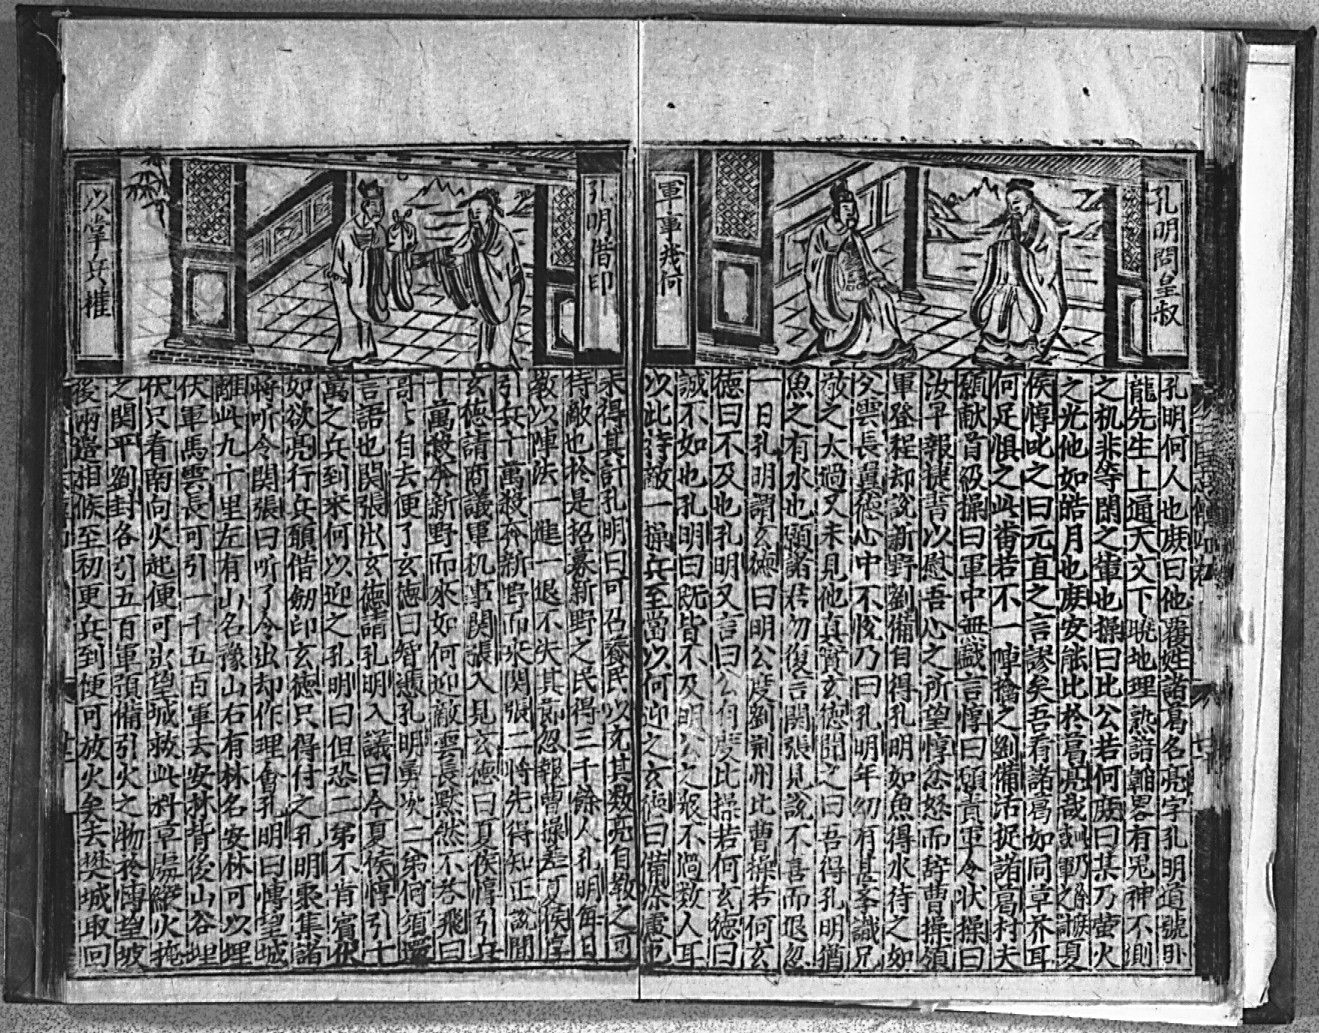 孔明問皇叔
軍事幾何
孔明何人也庶曰他覆姓諸葛名亮字孔明道號卧
龍先生上通天文下曉地理熟諳韜畧有鬼神不測
之机非等閑之輩也操曰比公若何庶曰某乃螢火
之光他如皓月也庶安能比於葛亮哉
侯惇叱之曰元直之言謬矣吾看諸葛如同草芥耳
何足懼之此畨若不一陣擒之劉備活捉諸葛村夫
願献首級操曰軍中無戱言惇曰願責軍令狀操曰
汝早報捷書以慰吾心之所望惇忿怒而辞曹操領
軍登程却說新野劉備自得孔明如魚得水待之如
父雲長翼德心中不悅乃曰孔明年幼有甚才識兄
敬之太過又未見他真實玄德聞之曰吾得孔明猶
魚之有水也願諸君勿復言關張見說不喜而退忽
一日孔明謂玄德曰明公度劉荆州比曹操若何玄
德曰不及也孔明又言曰公自度比操若何玄德曰
誠不如也孔明曰既皆不及明公之衆不過数人耳
以此待敵一操兵至當以何迎之玄德曰備深慮也
孔明借印
以掌兵權
未得其計孔明曰可召募民以充其数亮自教之可
待敵也於是招募新野之民得三千餘人孔明每日
教以陣法一進一退不失其節忽報曹操差夏侯惇
引兵十萬殺奔新野而來関張二將先得知正說間
玄德請商議軍机事関張入見玄德曰夏侯惇引兵
十萬殺奔新野而來如何迎敵雲長默然不答飛曰
哥哥自去便了玄德曰智憑孔明勇次二弟何須
言語也関張出玄德請孔明入議曰今夏侯惇引十
萬之兵到來何以迎之孔明曰但恐二弟不肯賓伏
如欲亮行兵願借劒印玄德只得付之孔明聚集諸
將听令関張曰听了令出却作理會孔明曰博望城
離此九十里左有山名豫山右有林名安林可以埋
伏軍馬雲長可引一千五百軍去安林背後山谷埋
伏只看南向火起便可出望城救此料草塲縱火掩
之関平劉封各引五百軍預備引火之物於博望坡
後兩邉相候至初更兵到便可放火矣去樊城取回